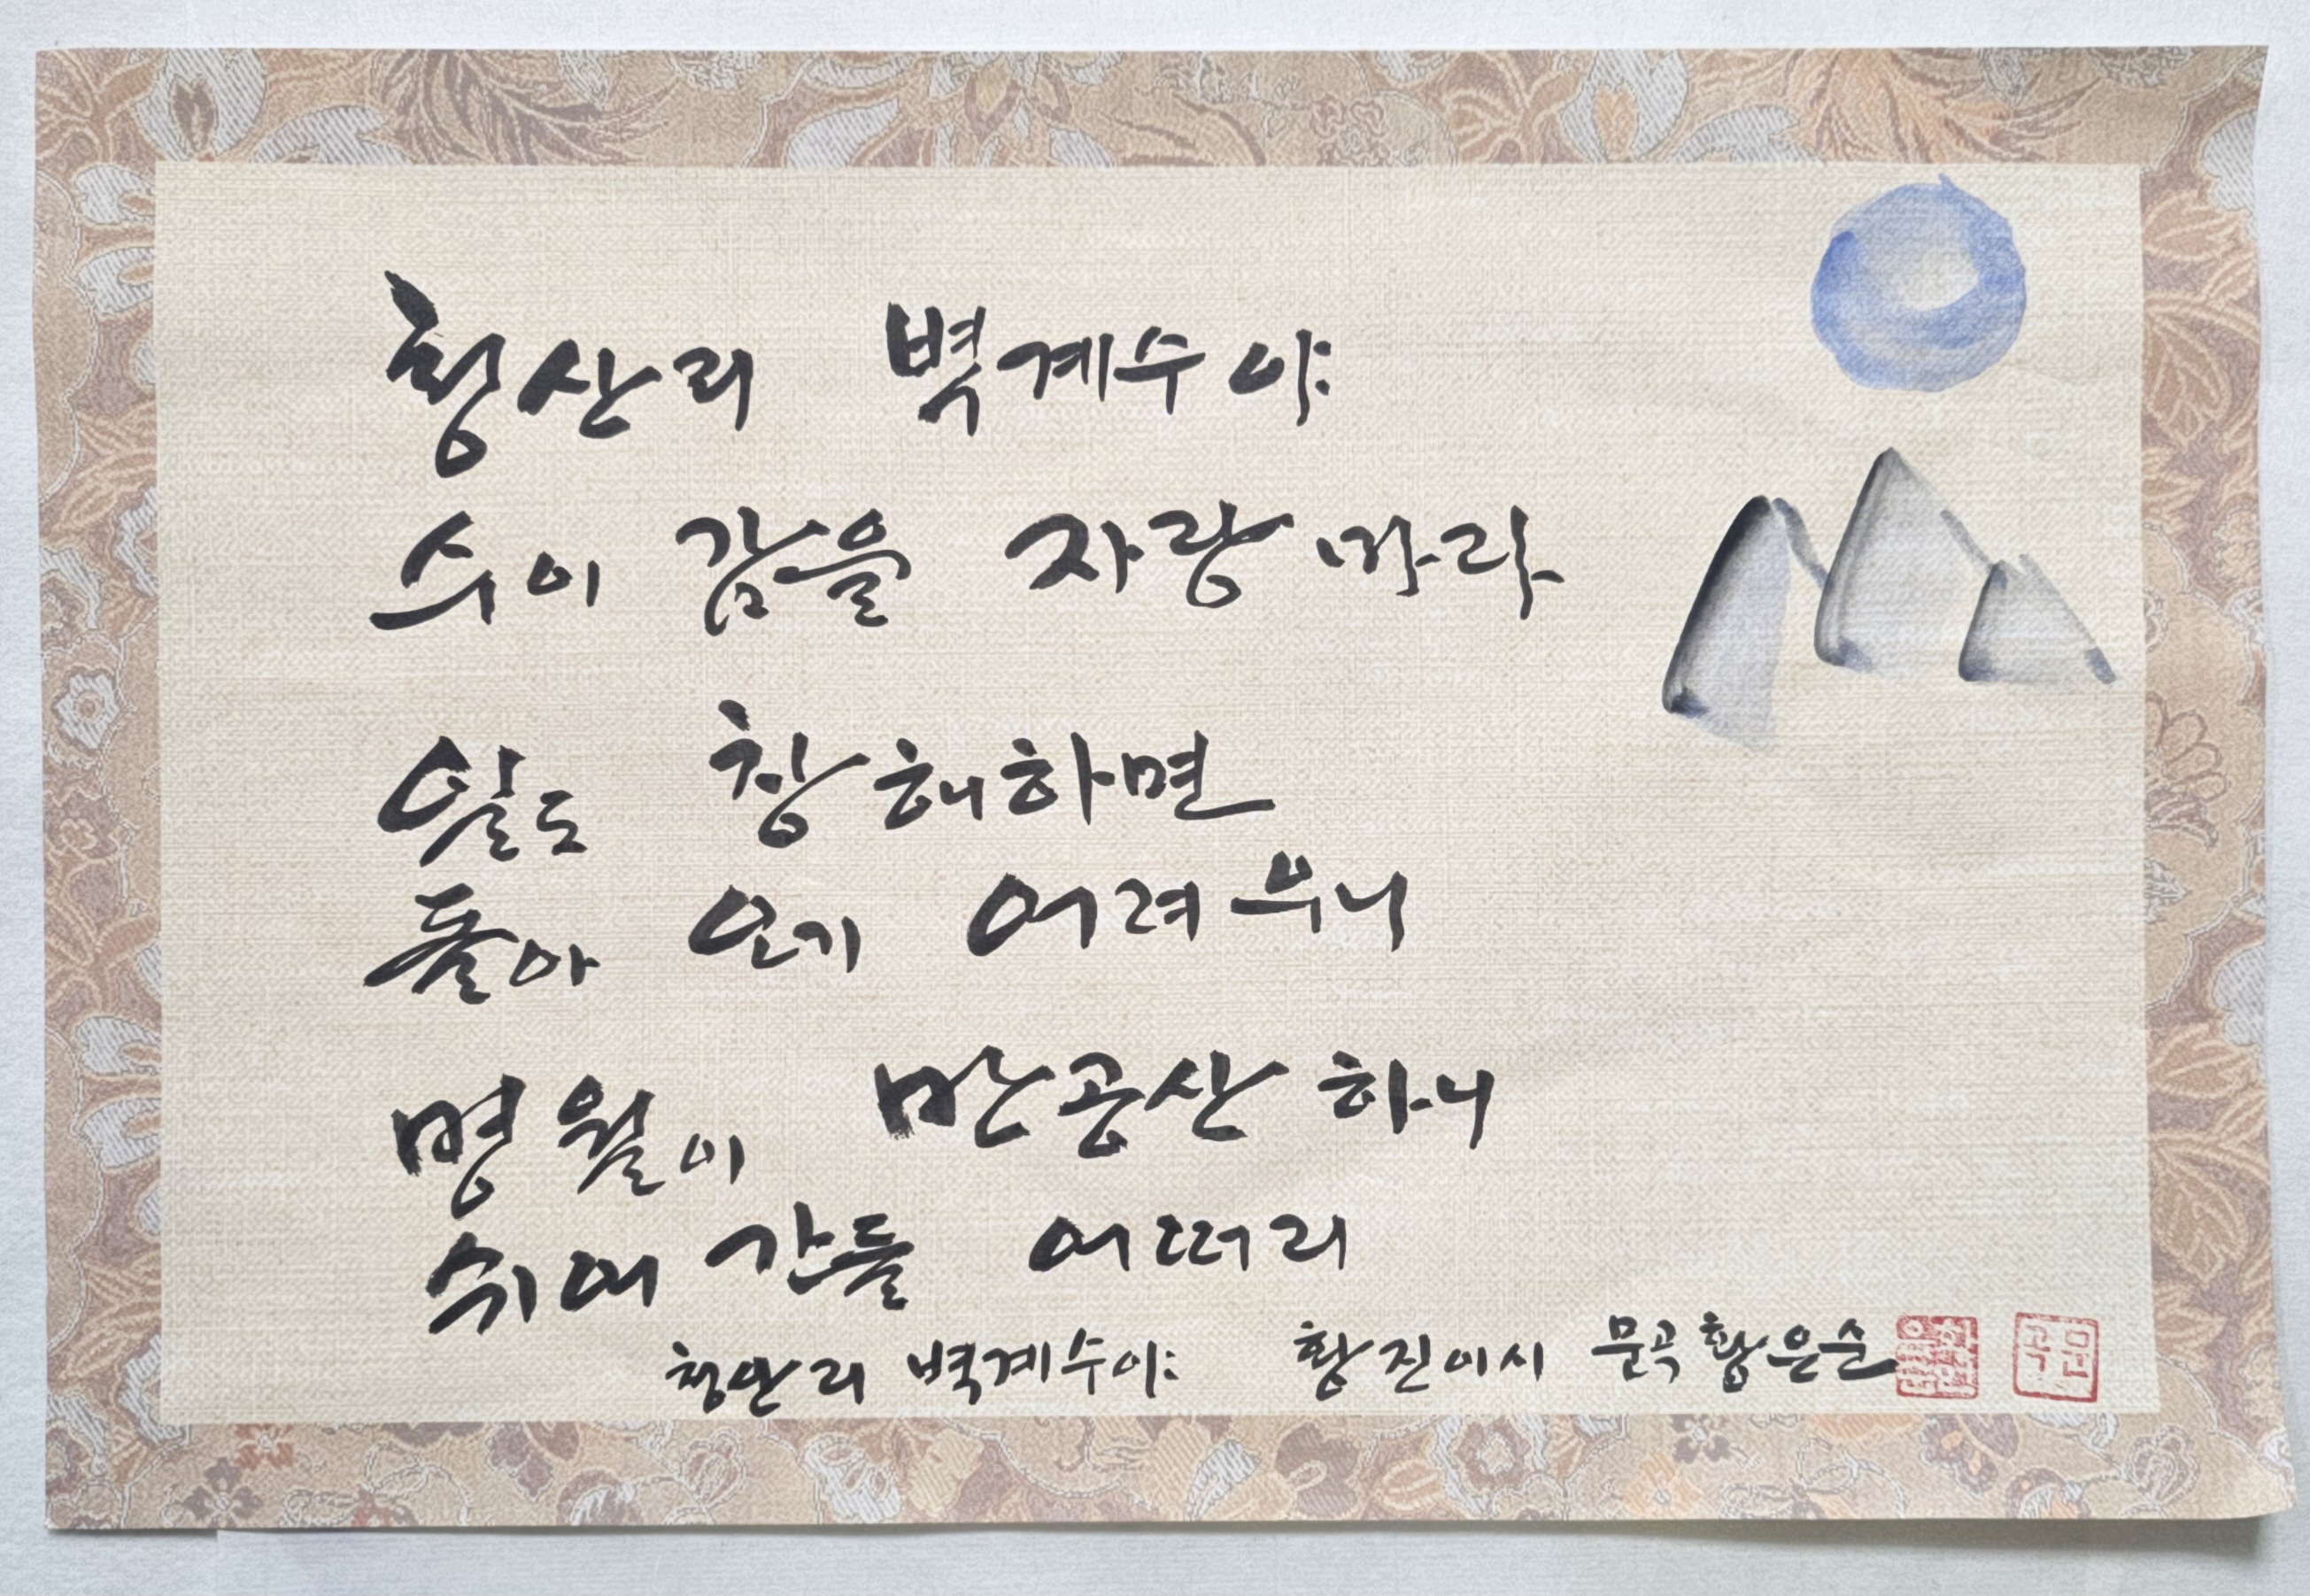 청산리 벽계수야
수이 감을 자랑마라
일도 창해하면
돌아 오기 어려우니
명월이 만공산 하니
쉬어 간들 어떠리
청안리 벽계수야 황진이시 문곡 황은순
황은순
문곡